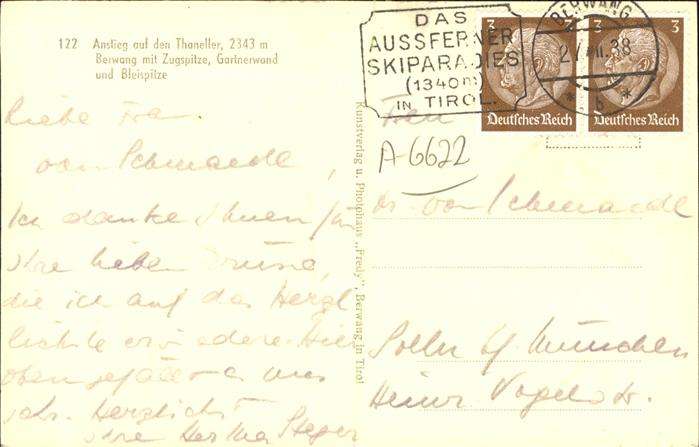 122 Anstieg auf den Thaneller, 2343 m
Berwang mit Zugspitze, Gartnerwand
und Bleispitze
DAS
AUSSFERNER
SKIPARADIES
(1340m)
IN TIROL.
BERWANG
38
* b *
3
3
Deutsches Reich
Deutsches Reich
Liebe Frau
von Schmaedel,
Ich danke Ihnen für
Ihre lieben Grüsse,
die ich auf das Herzl
lichste erwidere. Hier
oben gefällt es uns
sehr. Herzlichst
Ihre Hertha Steger
Kunstverlag u. Photohaus „Fredy", Berwang in Tirol
Frau
A-6622
Dr. von Schmaedel
Solln b/ München
Heinr. Vogelstr.